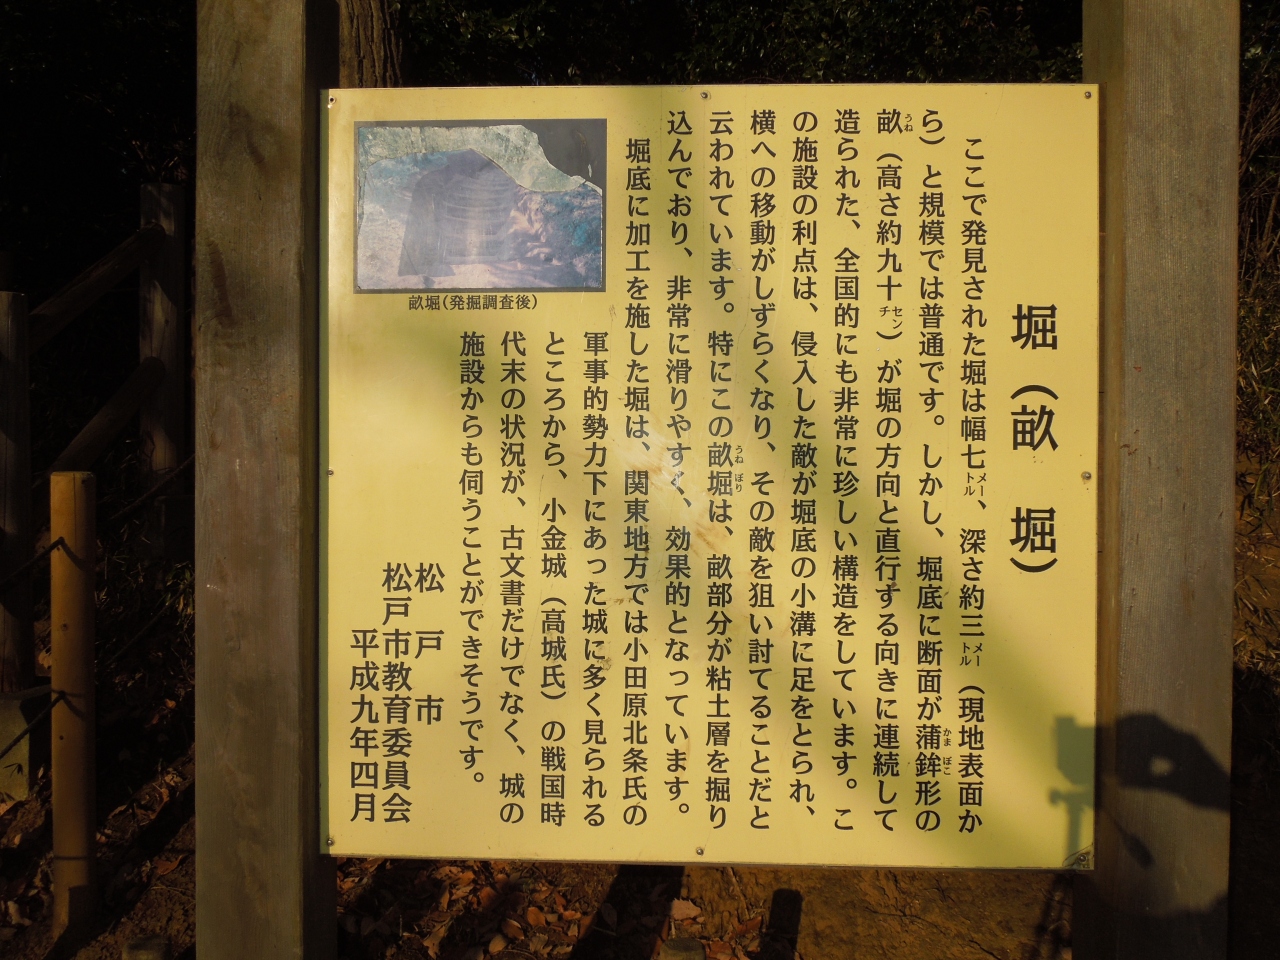 堀（畝　堀）
ここで発見された堀は幅七メートル、深さ約三メートル（現地表面か
ら）と規模では普通です。しかし、堀底に断面が蒲鉾形の
畝（高さ約九十センチ）が堀の方向と直行する向きに連続して
造られた、全国的にも非常に珍しい構造をしています。こ
の施設の利点は、侵入した敵が堀底の小溝に足をとられ、
横への移動がしずらくなり、その敵を狙い討てることだと
云われています。特にこの畝堀は、畝部分が粘土層を掘り
込んでおり、非常に滑りやすく、効果的となっています。
堀底に加工を施した堀は、関東地方では小田原北条氏の
軍事的勢力下にあった城に多く見られる
ところから、小金城（高城氏）の戦国時
代末の状況が、古文書だけでなく、城の
施設からも伺うことができそうです。
松戸市
松戸市教育委員会
平成九年四月
畝堀（発掘調査後）
かまぼこ
うね
うねぼり